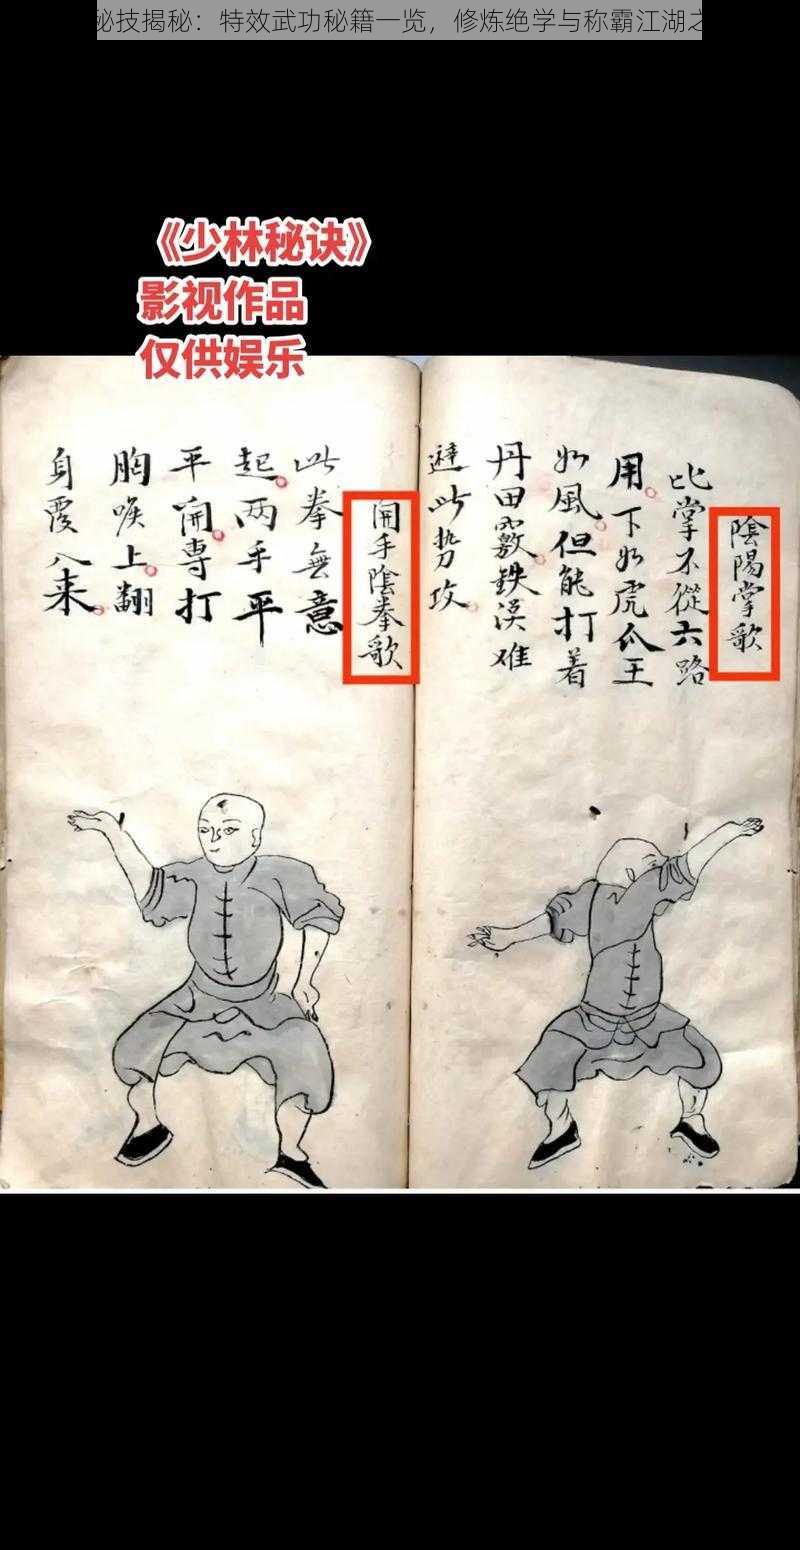 秘技揭秘：特效武功秘籍一览，修炼绝学与称霸江湖之
《少林秘诀》
影视作品
仅供娱乐
陰陽掌歌
此掌不從六路
用下如虎爪王
如風但能打着
丹田竅鉄漢难
避此势攻
開手陰拳歌
此拳無意
起两手平
平開專打
胸喉上翻
身覆入来